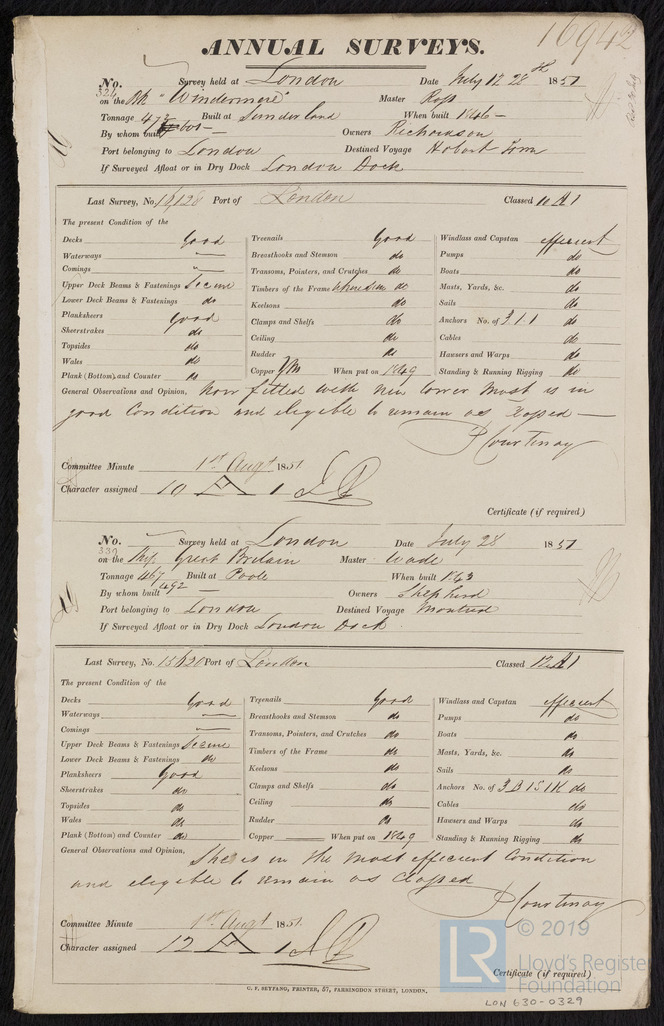 16942
ANNUAL SURVEYS.
No. Survey held at London Date July 12 28th 1851
324
on the Bk "Windermere" Master Ross
Tonnage 473 Built at Sunderland When built 1846 —
By whom built Owners Richardson
Port belonging to London Destined Voyage Hobart Town
If Surveyed Afloat or in Dry Dock London Dock
Last Survey, No. Port of London Classed A1
The present Condition of the
Decks Good Treenails Good Windlass and Capstan efficient
Waterways " Breasthooks and Stemson do Pumps do
Comings " Transoms, Pointers, and Crutches do Boats do
Upper Deck Beams & Fastenings Secure Timbers of the Frame where seen do Masts, Yards, &c. do
Lower Deck Beams & Fastenings do Keelsons do Sails do
Planksheers Good Clamps and Shelfs do Anchors No. of 3.1.1 do
Sheerstrakes do Ceiling do Cables do
Topsides do Rudder do Hawsers and Warps do
Wales do Copper YM When put on 1849 Standing & Running Rigging do
Plank (Bottom) and Counter do
General Observations and Opinion, Now fitted with new lower Mast is in
good Condition and eligible to remain as Classed —
P Courtenay
Committee Minute 1st Augt 1851
Character assigned 10 A 1
Certificate (if required)
No. Survey held at London Date July 28 1851
339
on the Ship Great Britain Master Wade
Tonnage 467 Built at Poole When built 1843
492
By whom built — Owners Shepherd
Port belonging to London Destined Voyage Montreal
If Surveyed Afloat or in Dry Dock London Dock
Last Survey, No. 15620 Port of London Classed 12 A1
The present Condition of the
Decks Good Treenails Good Windlass and Capstan efficient
Waterways " Breasthooks and Stemson do Pumps do
Comings " Transoms, Pointers, and Crutches do Boats do
Upper Deck Beams & Fastenings Secure Timbers of the Frame do Masts, Yards, &c. do
Lower Deck Beams & Fastenings do Keelsons do Sails do
Planksheers Good Clamps and Shelfs do Anchors No. of 3 B 1 S 1 K do
Sheerstrakes do Ceiling do Cables do
Topsides do Rudder do Hawsers and Warps do
Wales do Copper — When put on 1849 Standing & Running Rigging do
Plank (Bottom) and Counter do
General Observations and Opinion, She is in the most efficient Condition
and eligible to remain as Classed
P Courtenay
Committee Minute 1st Augt 1851.
Character assigned 12 A 1
Certificate (if required)
C. F. SEYFANG, PRINTER, 57, FARRINGDON STREET, LONDON.
LR © 2019
Lloyd's Register
Foundation
LON 630-0329